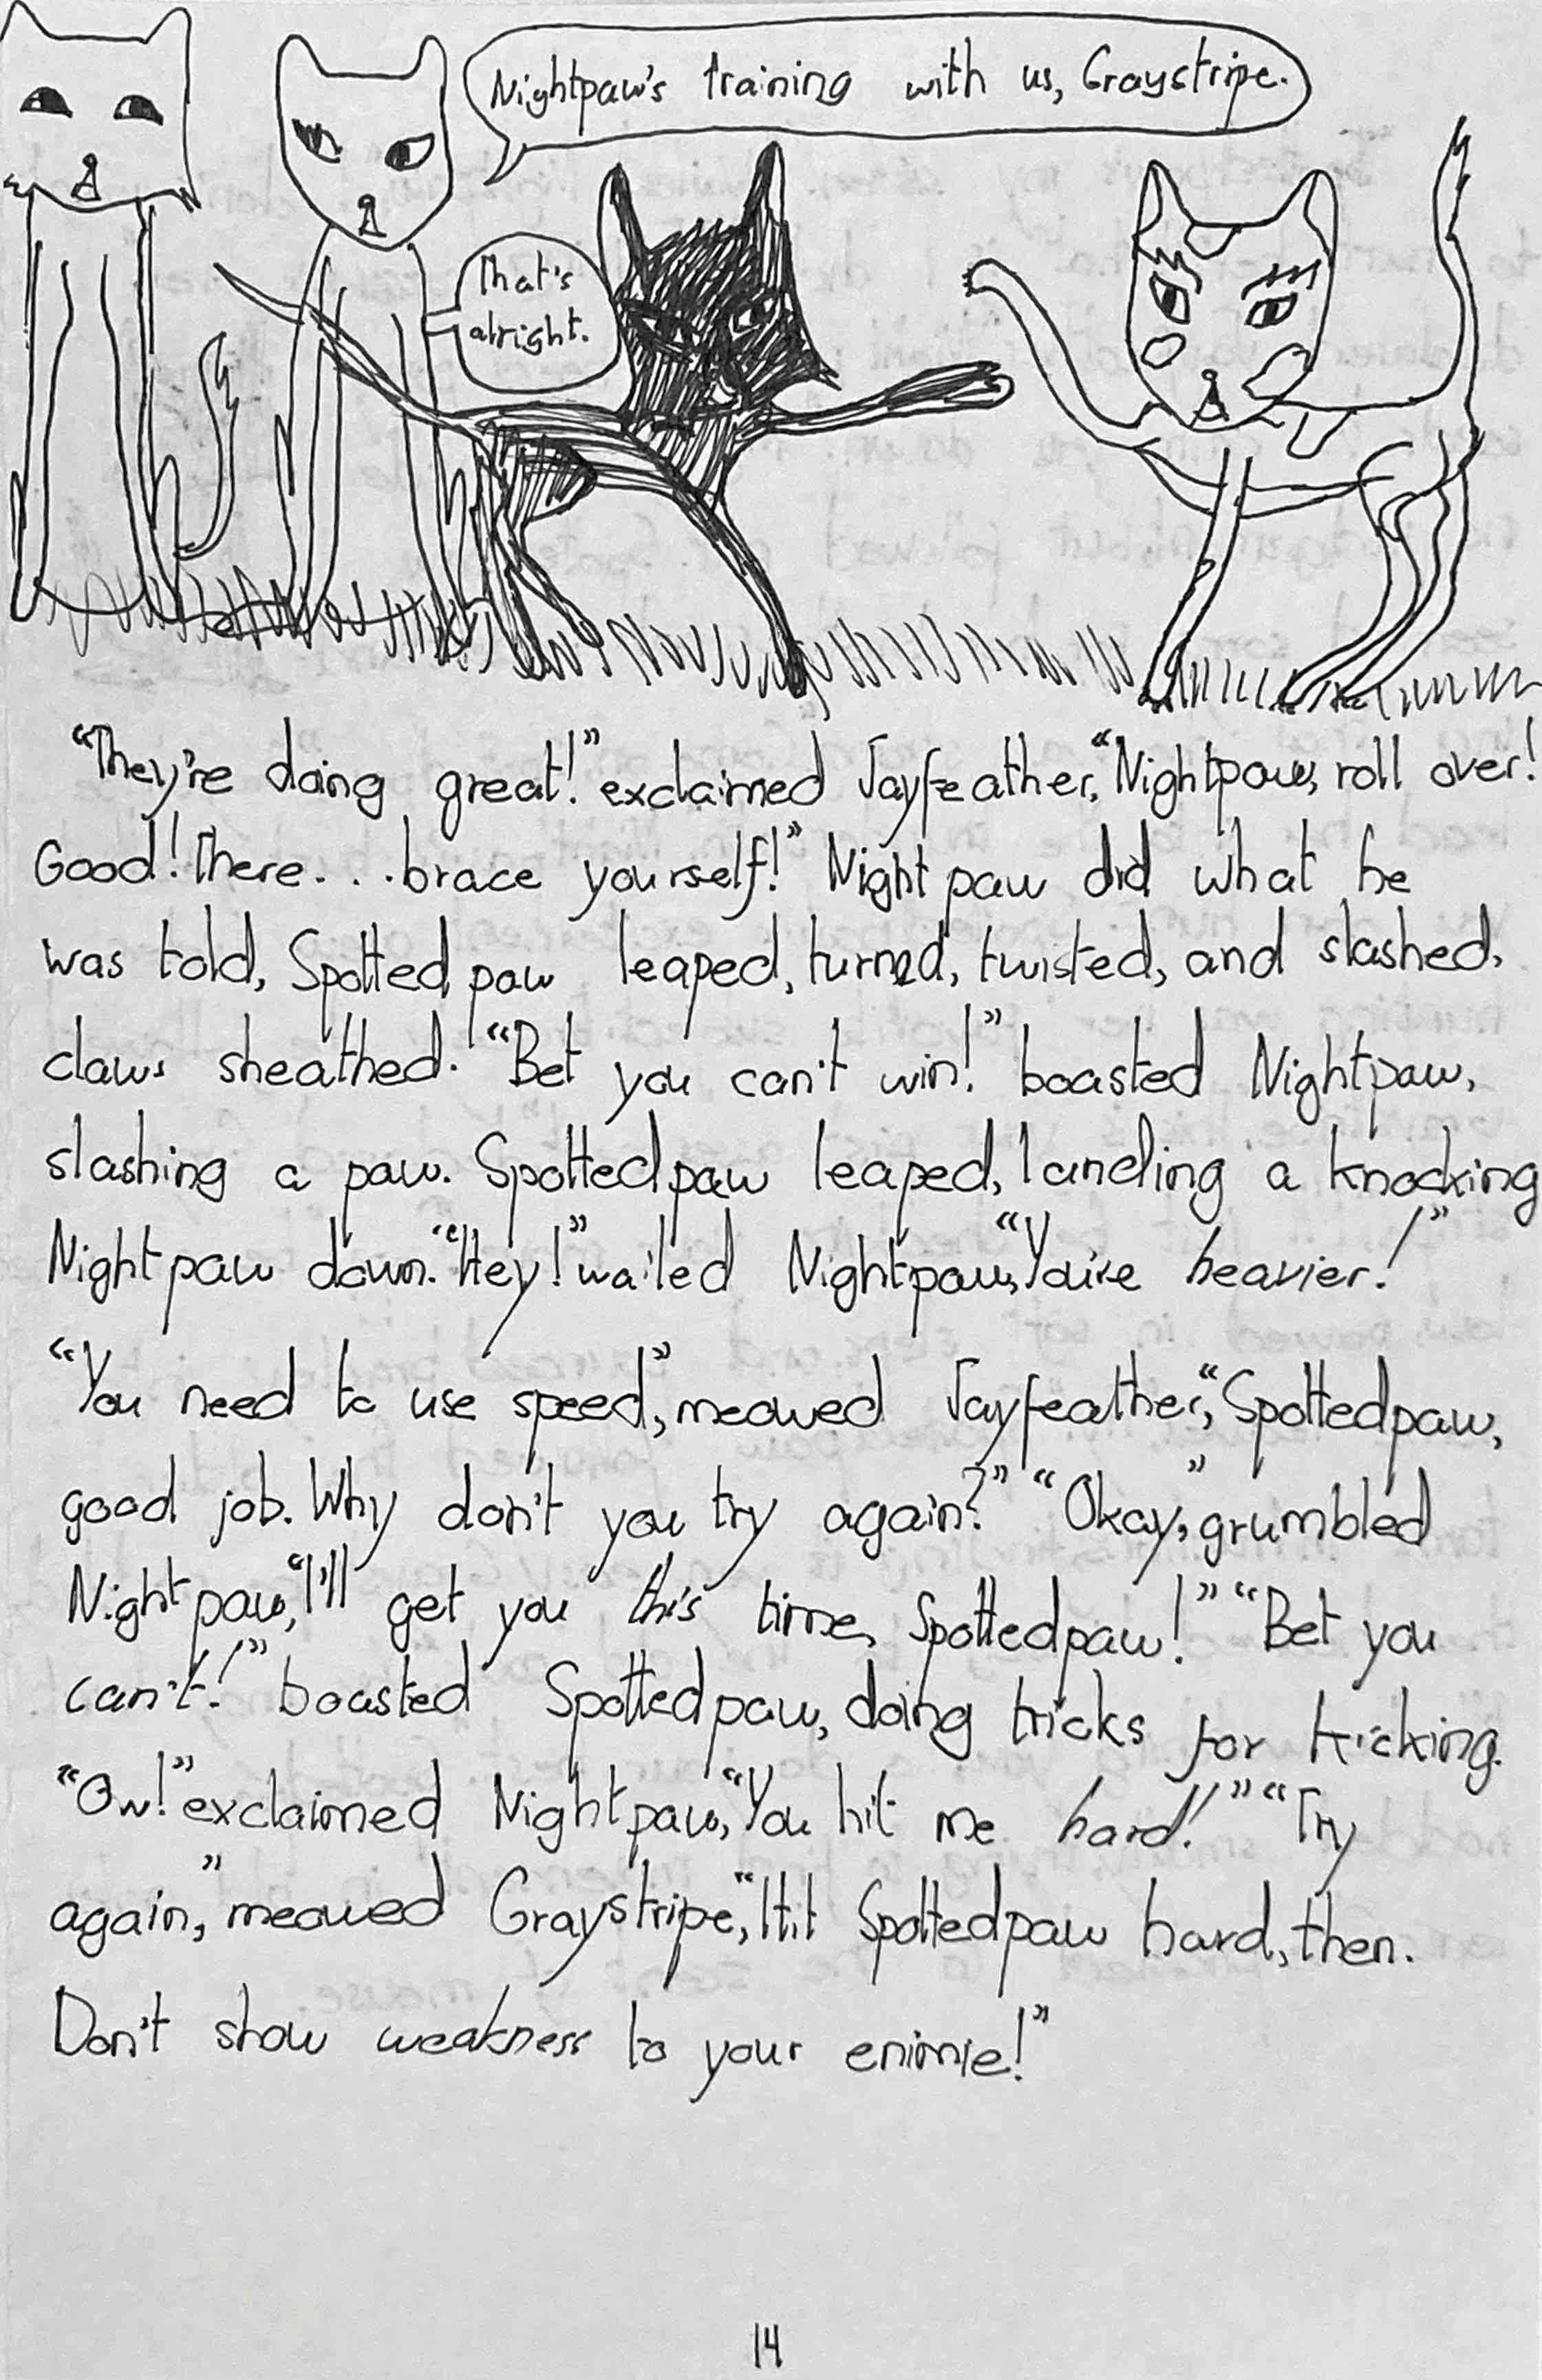 Nightpaw's training with us, Graystripe.
That's
alright.
"They're doing great!" exclaimed Jayfeather, "Nightpaw, roll over!
Good! There. . . brace yourself!" Nightpaw did what he
was told, Spottedpaw leaped, turned, twisted, and slashed,
claws sheathed. "Bet you can't win!" boasted Nightpaw,
slashing a paw. Spottedpaw leaped, landing a knocking
Nightpaw down. "Hey!" wailed Nightpaw, "You're heavier!"
"You need to use speed," meowed Jayfeather, "Spottedpaw,
good job. Why don't you try again?" "Okay," grumbled
Nightpaw, "I'll get you this time, Spottedpaw!" "Bet you
can't!" boasted Spottedpaw, doing tricks for tricking.
"Ow!" exclaimed Nightpaw, "You hit me hard!" "Try
again," meowed Graystripe, "Hit Spottedpaw hard, then.
Don't show weakness to your enimie!"
14